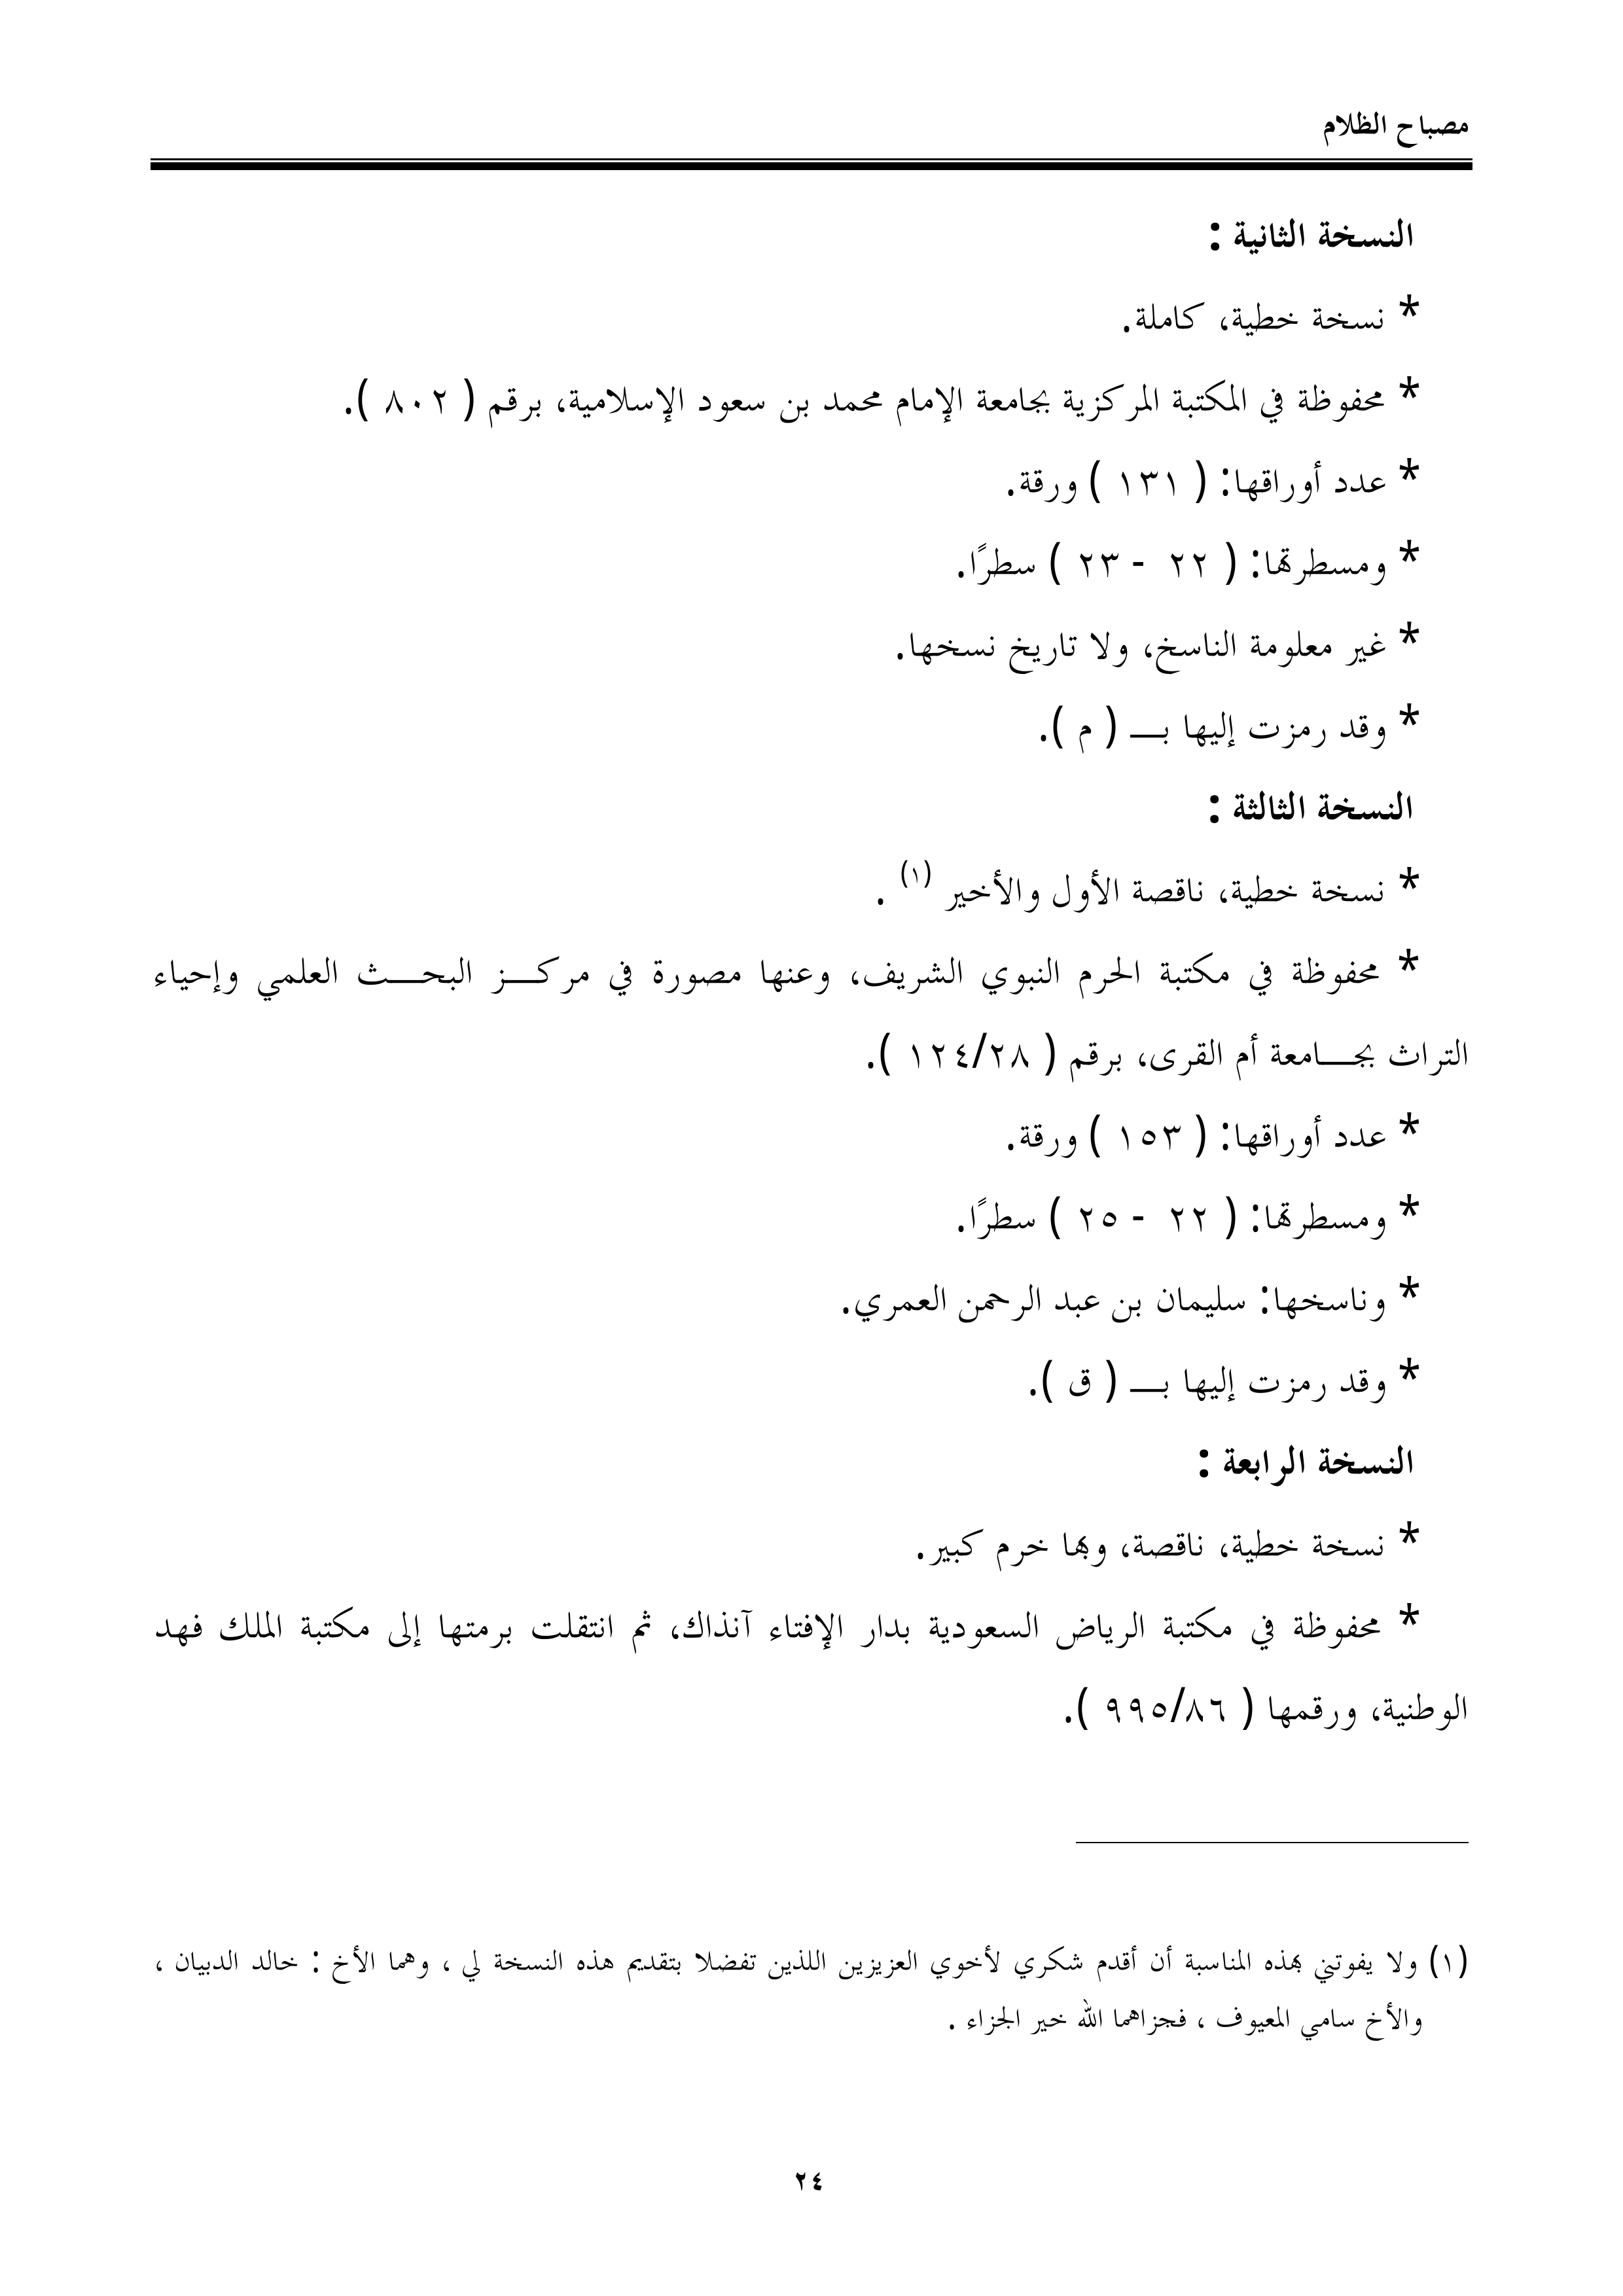 مصباح الظلام
النسخة الثانية :
* نسخة خطية، كاملة.
* محفوظة في المكتبة المركزية بجامعة الإمام محمد بن سعود الإسلامية، برقم ( ٨٠٢ ).
* عدد أوراقها: ( ١٣١ ) ورقة.
* ومسطرتها: ( ٢٢ - ٢٣ ) سطرًا.
* غير معلومة الناسخ، ولا تاريخ نسخها.
* وقد رمزت إليها بـــ ( م ).
النسخة الثالثة :
* نسخة خطية، ناقصة الأول والأخير (١) .
* محفوظة في مكتبة الحرم النبوي الشريف، وعنها مصورة في مركـــز البحـــث العلمي وإحياء
التراث بجـــامعة أم القرى، برقم ( ١٢٤/٢٨ ).
* عدد أوراقها: ( ١٥٣ ) ورقة.
* ومسطرتها: ( ٢٢ - ٢٥ ) سطرًا.
* وناسخها: سليمان بن عبد الرحمن العمري.
* وقد رمزت إليها بـــ ( ق ).
النسخة الرابعة :
* نسخة خطية، ناقصة، وبها خرم كبير.
* محفوظة في مكتبة الرياض السعودية بدار الإفتاء آنذاك، ثم انتقلت برمتها إلى مكتبة الملك فهد
الوطنية، ورقمها ( ٩٩٥/٨٦ ).
(١) ولا يفوتني بهذه المناسبة أن أقدم شكري لأخوي العزيزين اللذين تفضلا بتقديم هذه النسخة لي ، وهما الأخ : خالد الدبيان ،
والأخ سامي المعيوف ، فجزاهما الله خير الجزاء .
٢٤